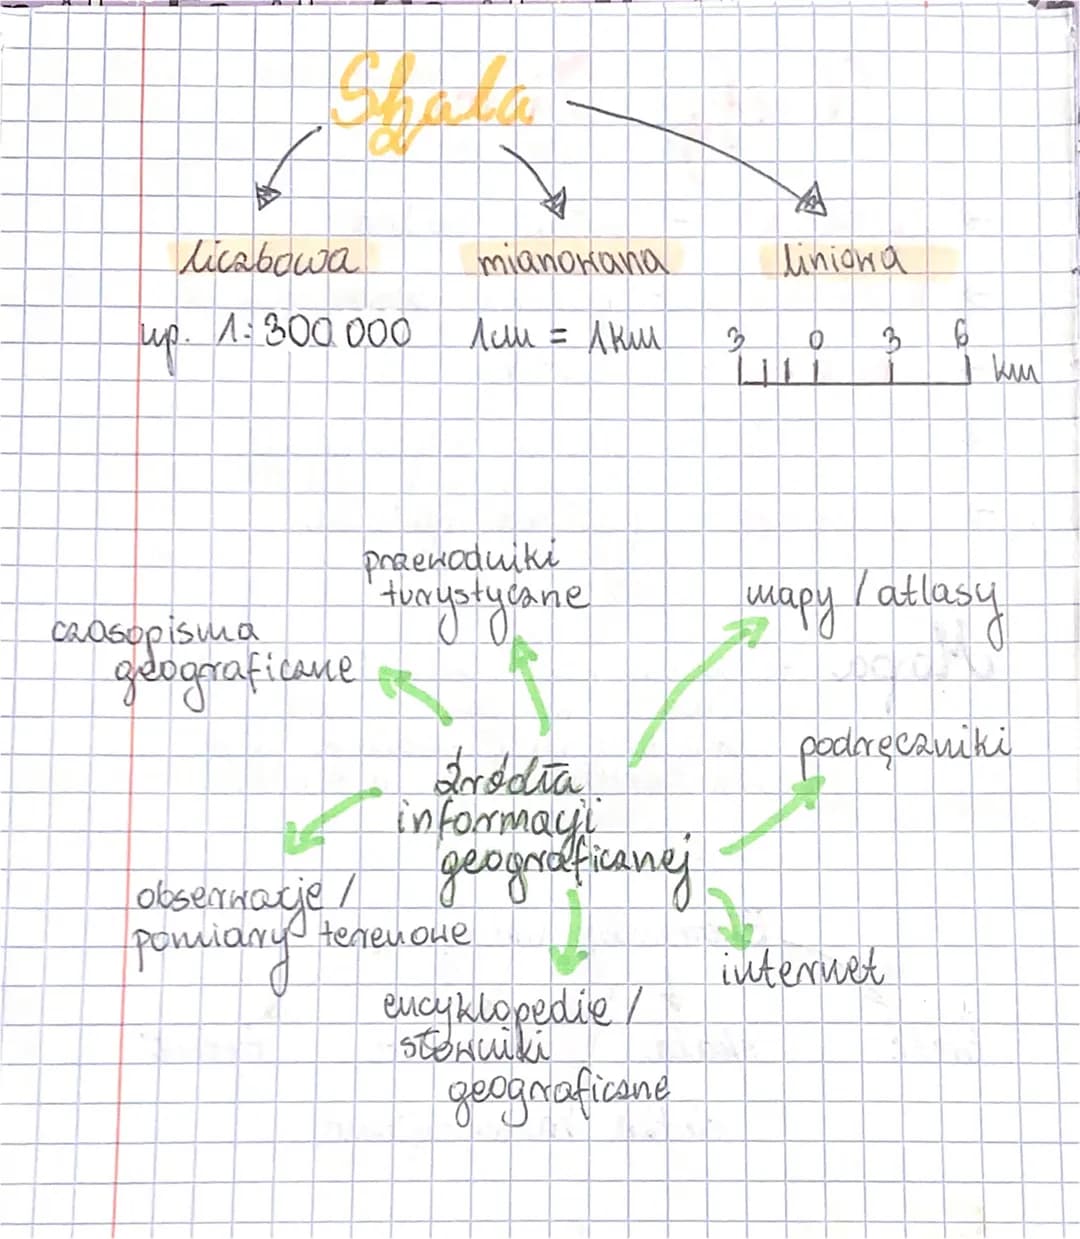 Skala
liczbowa mianowana liniowa
np. 1:300 000 1cm = 1km 3 0 3 6 km
przewodniki
turystyczne
mapy / atlasy
czasopisma
geograficzne
podręczniki
źródła
informacji
geograficznej
obserwacje /
pomiary terenowe
internet
encyklopedie /
słowniki
geograficzne